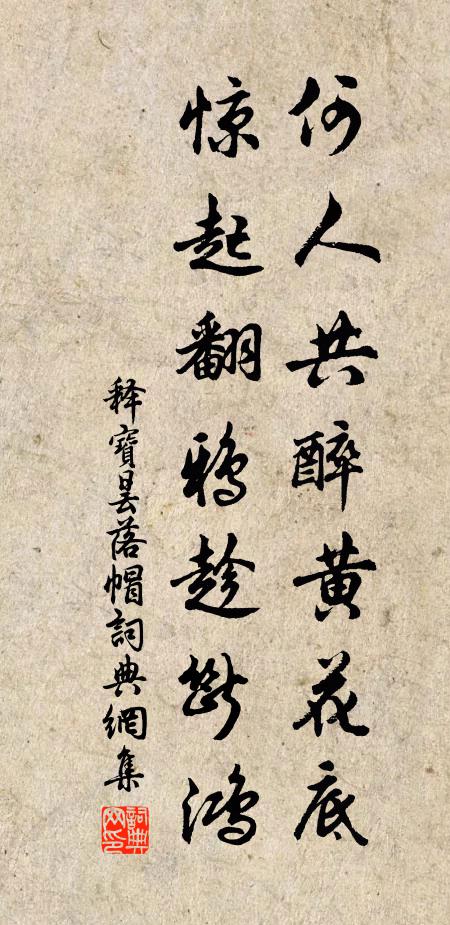 何人共醉黄花底
惊起翻鸦趁断鸿
释寶昙落帽詞典網集
詞典网印